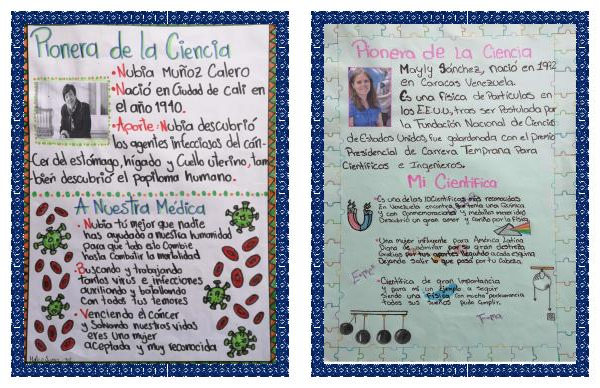 Pionera de la Ciencia
• Nubia Muñoz Calero
• Nació en Ciudad de cali en
el año 1940.
• Aporte: Nubia descubrió
los agentes infecciosos del cán-
Cer del estómago, hígado y Cuello uterino, tam
bién descubrió el papiloma humano.
A Nuestra Médica
• Nubia tú mejor que nadie
has ayudado a nuestra humanidad
para que todo esto Cambie
hasta Combatir la morbilidad
• Buscando y trabajando
tantos virus e infecciones
auxiliando y batallando
Con todos tus temores
• Venciendo el Cáncer
y Salvando nuestras vidas
eres una mujer
aceptada y muy reconocida
Pionera de La Ciencia
Mayly Sánchez, nació en 1972
en Caracas Venezuela.
Es una física de Partículas en
los EE.UU, tras ser Postulada por
la Fundación Nacional de Ciencias
de Estados Unidos, fue galardonada con el Premio
Presidencial de Carrera Temprana Para
Científicos e Ingenieros.
Mi Científica
• Es una de las 10 Científicas más reconocidas
En Venezuela encontró
y con
Descubrió un gran amor y Cariño por la física
• Una mujer influyente para América Latina
Digna de admirar por su gran destreza
Gracias por tus aportes llegando a cada esquina
Dejando salir lo que pasa por tu Cabeza.
• Científica de gran importancia
y para mí un Ejemplo a Seguir
Siendo una física con mucha perseverancia
todos sus sueños pudo Cumplir.